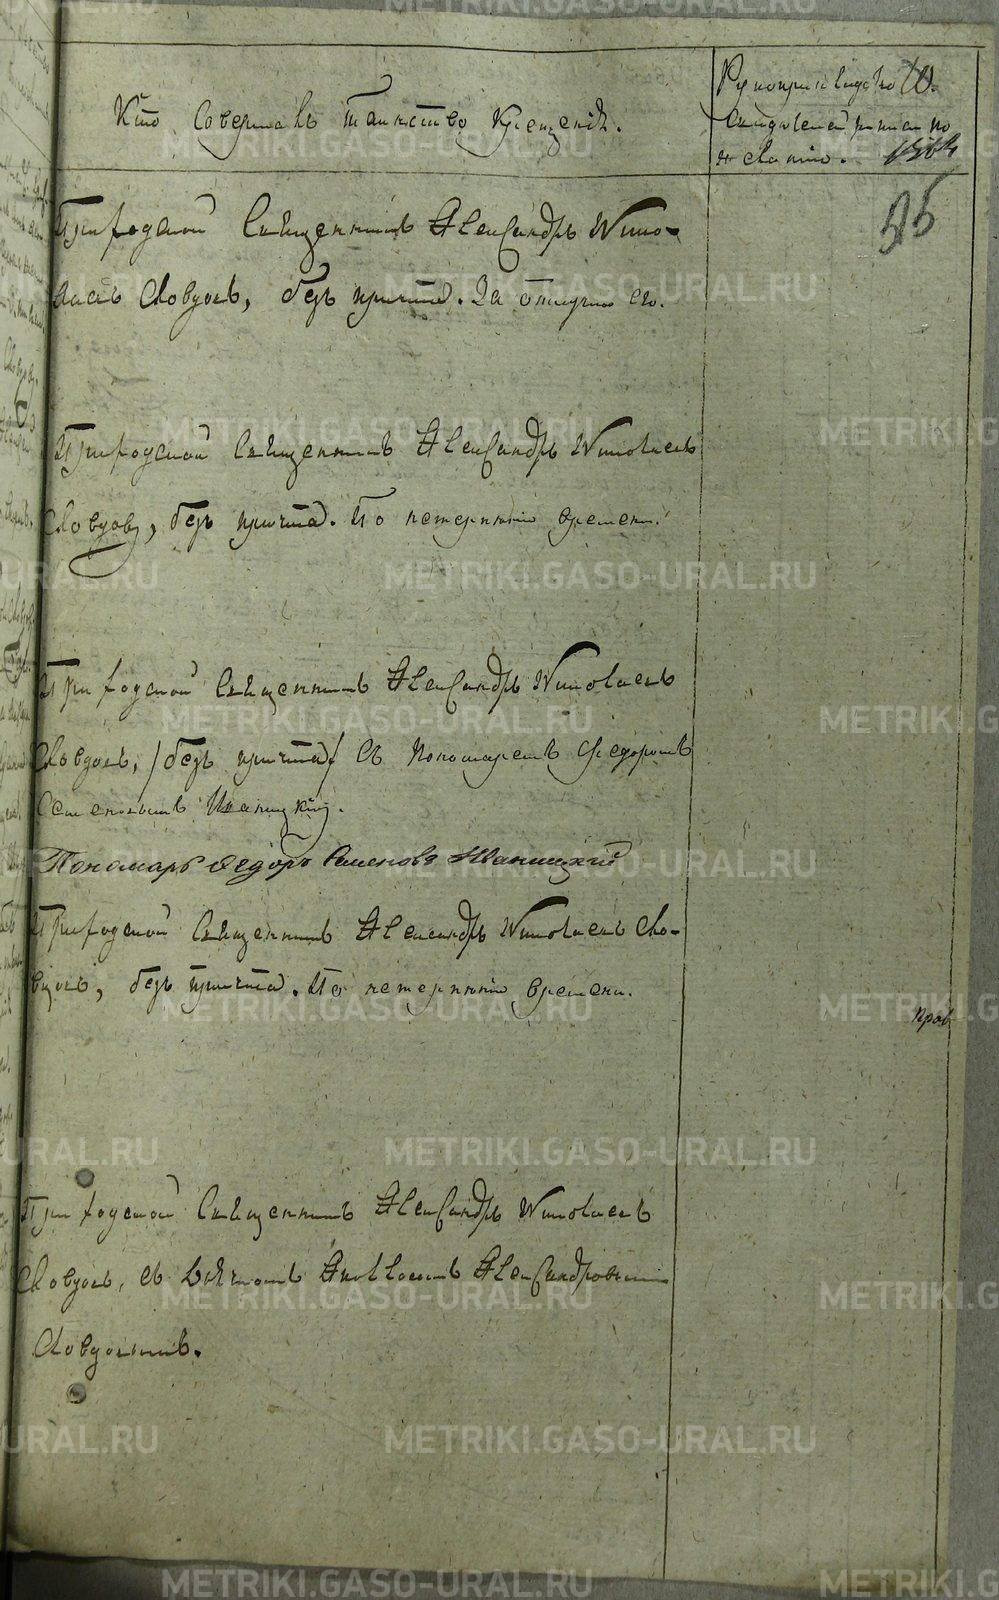 Кто совершалъ таинство крещенія.
Рукоприкладство
свидѣтелей записи по
желанію.
95
Приходской Священникъ Александръ Нико-
лаевъ Словцовъ, безъ причта. За отлучкою его.
Приходской Священникъ Александръ Николаевъ
Словцовъ, безъ причта. По нетерпѣнію времени.
Приходской Священникъ Александръ Николаевъ
Словцовъ, /безъ причта/ съ Пономаремъ Федоромъ
Семеновымъ
Пономарь Федоръ Семеновъ
Приходской Священникъ Александръ Николаевъ Сло-
вцовъ, безъ причта. По нетерпѣнію времени.
пров
Приходской Священникъ Александръ Николаевъ
Словцовъ, съ Дьячкомъ Александровымъ
Словцовымъ.